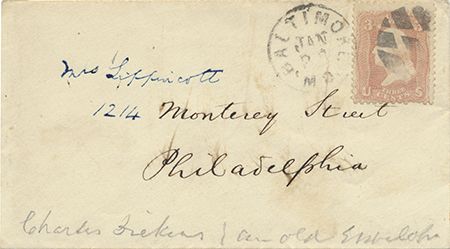 BALTIMORE
JAN
MD
3 3
U THREE CENTS S
Mrs Lippincott
1214 Monterey Street
Philadelphia
Charles Dickens / an old Envelope